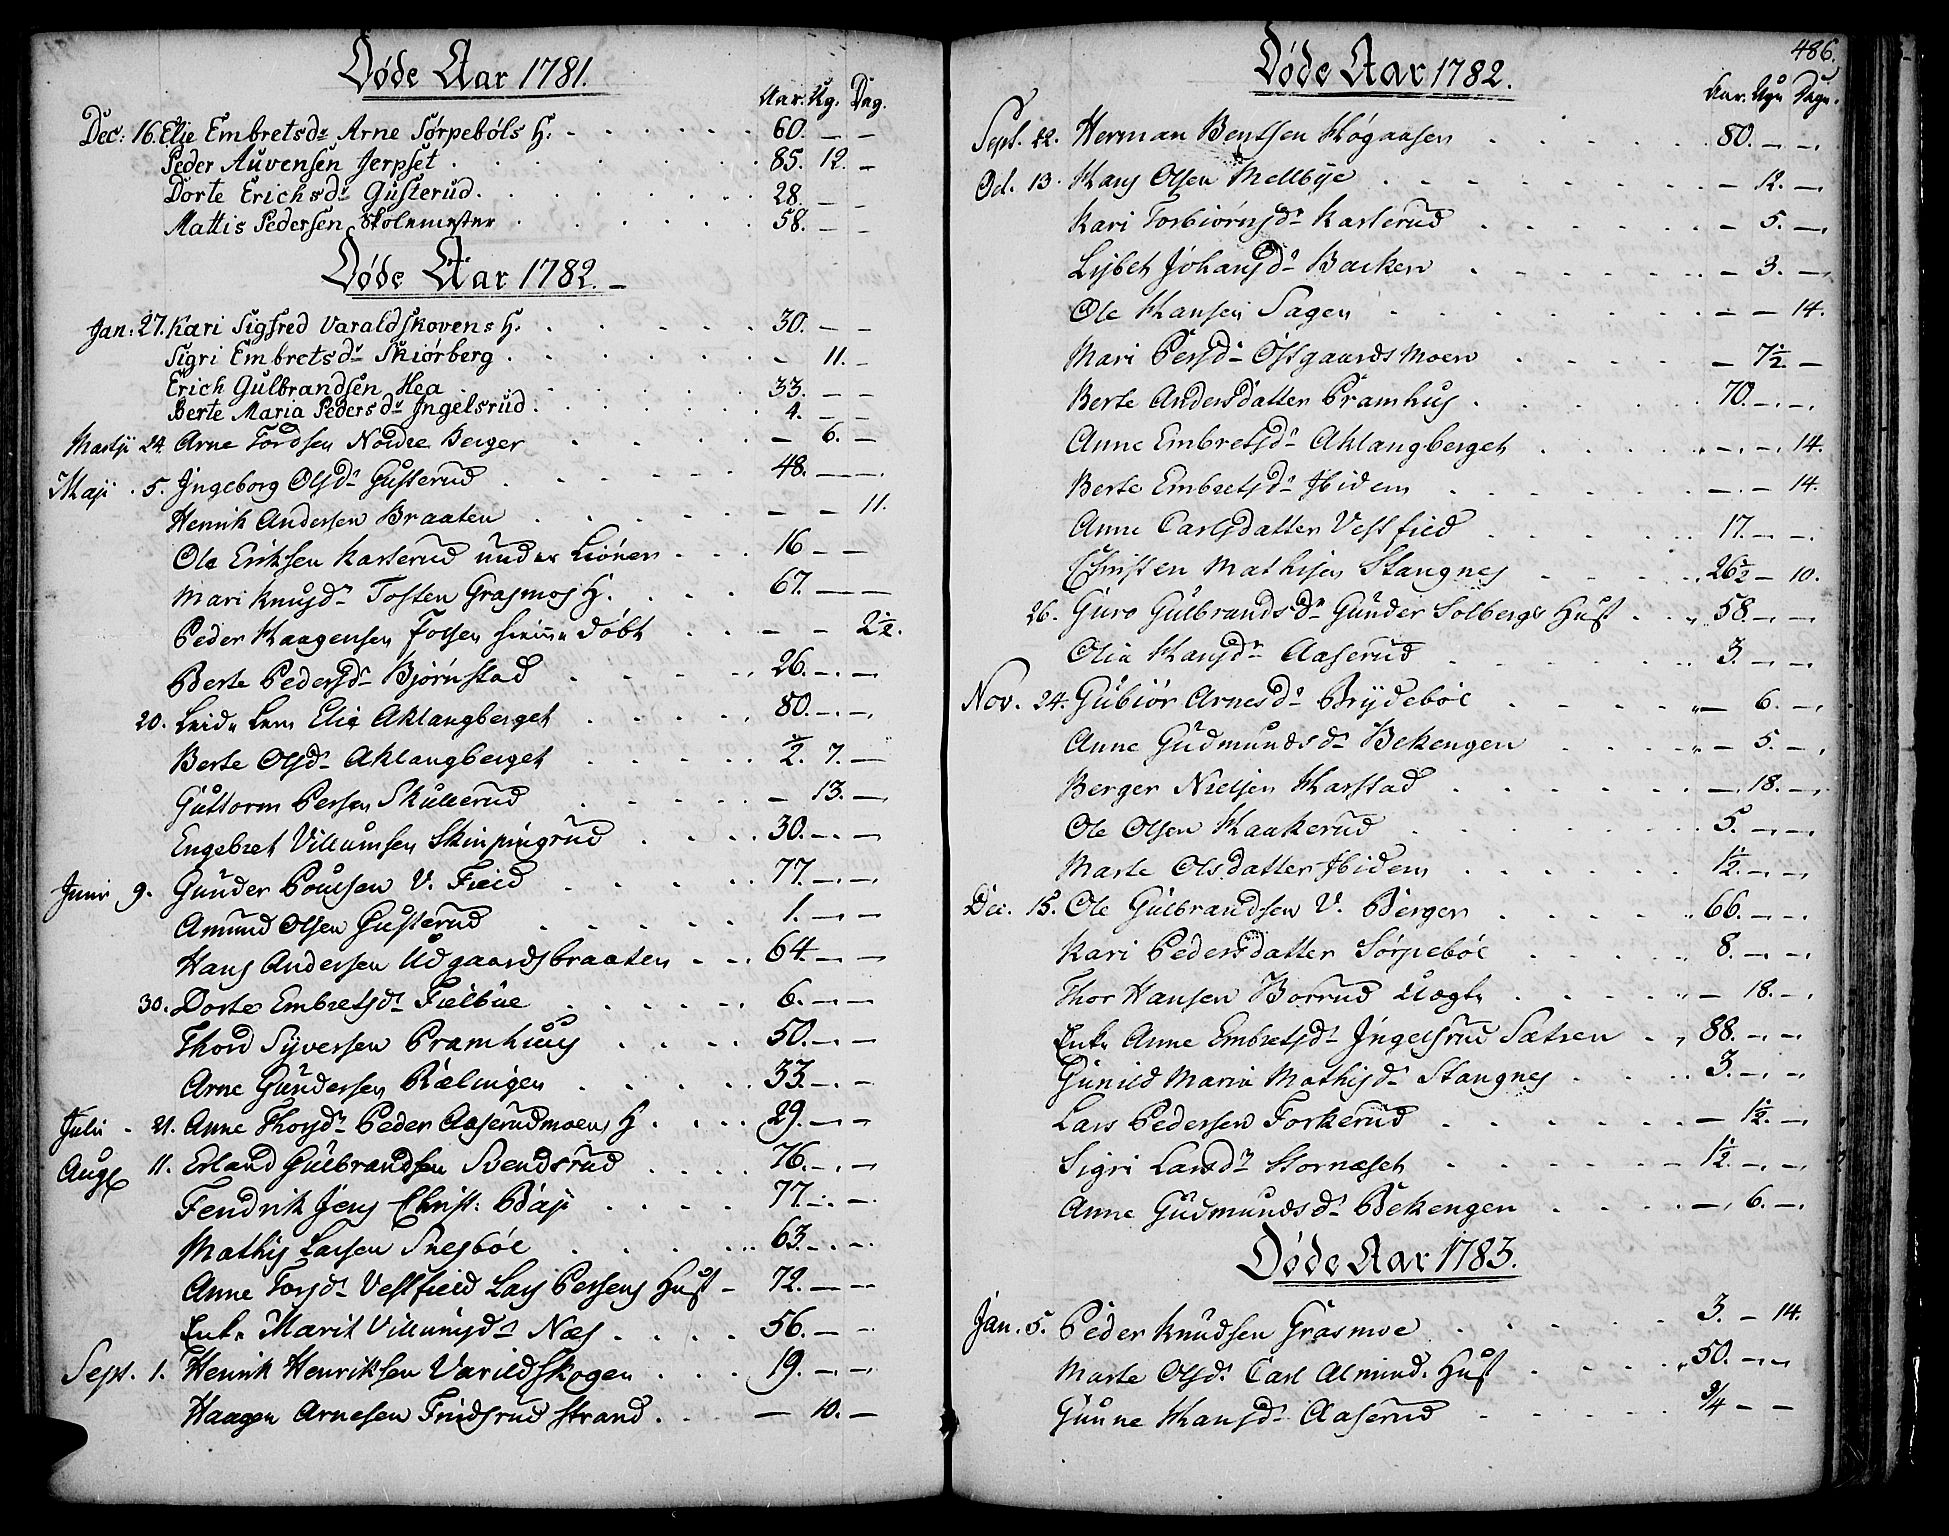 Døde Aar 1781.
Aar. Ug. Dag.
Dec: 16. Elie Embretsdr Arne Sørpebøls H. 60. — —
Peder Auvensen Jerpset 85. 12. —
Dorte Erichsdr Gusterud 28. — —
Mattis Pedersen Skolemester 58. — —
Døde Aar 1782.
Jan: 27. Kari Sigfred Varaldskovens H. 30. — —
Sigri Embretsdr Skiørberg — 11. —
Erich Gulbrandsen Hea 33. — —
Berte Maria Pedersdr Ingelsrud 4. — —
Martji 24. Arne Tordsen Nordre Berger — 6. —
Maji 5. Ingeborg Olsdr Gusterud 48. — —
Henrik Andersen Braaten — — 11.
Ole Eriksen Karterud under Liønen 16 — —
Mari Knusdr Tosten Grasmos H. 67. — —
Peder Haagensen Fossen hiemme døbt — — 2½.
Berte Pedersdr Bjørnstad 26. — —
20. Leid. Lem Elie Aklangberget 80. — —
Berte Olsdr Aklangberget ½. 7. —
Guttorm Persen Skullerud — 13. —
Engebret Villumsen Skinpingrud 30. — —
Junii 9. Gunder Poulsen V. Field 77. — —
Amund Olsen Gusterud 1. — —
Hans Andersen Udgaardsbraaten 64. — —
30. Dorte Embretsdr Fielbue 6. — —
Thord Syversen Pramhuus 50. — —
Arne Gundersen Rælingen 33. — —
Julii 21. Anne Thorsdr Peder Aaserudmoens H 29. — —
Aug 11. Erland Gulbrandsen Bendsrud 76. — —
Fendrik Jens Christ: Bay 77. — —
Mathis Larsen Snesbøl 63. — —
Anne Torsdr Vestfield Lars Persens Hust 72. — —
Enke Marit Villumsdr Næs 56. — —
Sept. 1. Henrik Henriksen Varildskogen 19. — —
Haagen Arnesen Fridsrud strand — 10. —
486.
Døde Aar 1782.
Aar. Ugn Dage.
Sept. 22. Herman Bentsen Høgaasen 80. — —
Oct. 13. Hans Olsen Mellbye — 12. —
Kari Torbiørnsdr Karterud — 5. —
Lisbet Johansdr Backen — 3. —
Ole Hansen Sagen — — 14.
Mari Persdr Ossgaards Moen — 7½. —
Berte Andersdatter Pramhus 70. — —
Anne Embretsdr Aklangberget — — 14.
Berte Embretsdr Ibidem — — 14.
Anne Carlsdatter Vestfield 17. — —
Christen Mathisen Stangnes 26½ — 10.
26. Guro Gulbrandsdr Gunder Solbergs Hust 58. — —
Olia Hansdr Aaserud 3. — —
Nov. 24. Gubiør Arnesdr Brydebøl — 6. —
Anne Gudmundsdr Bekengen — 5. —
Berger Nielsen Harstad — 18. —
Ole Olsen Haakerud 5. — —
Marte Olsdatter Ibidem ½. — —
Dec. 15. Ole Gulbrandsen V. Berger 66. — —
Kari Pedersdatter Sørpebøl 8. — —
Thor Hansen Borrud Uægte — 18. —
Enke Anne Embretsdr Ingelsrud Sætren 88. — —
Gunild Maria Mathisdr Stangnes 3. — —
Lars Pedersen Forkerud — ½. —
Sigri Larsdr Stornæset ½. — —
Anne Gudmundsdr Bekengen — 6. —
Døde Aar 1783.
Jan. 5. Peder Knudsen Grasmoe 3. — 14.
Marte Olsdr Carl Almind. Hust 50. — —
Gunne Hansdr Aaserud ¾ — —